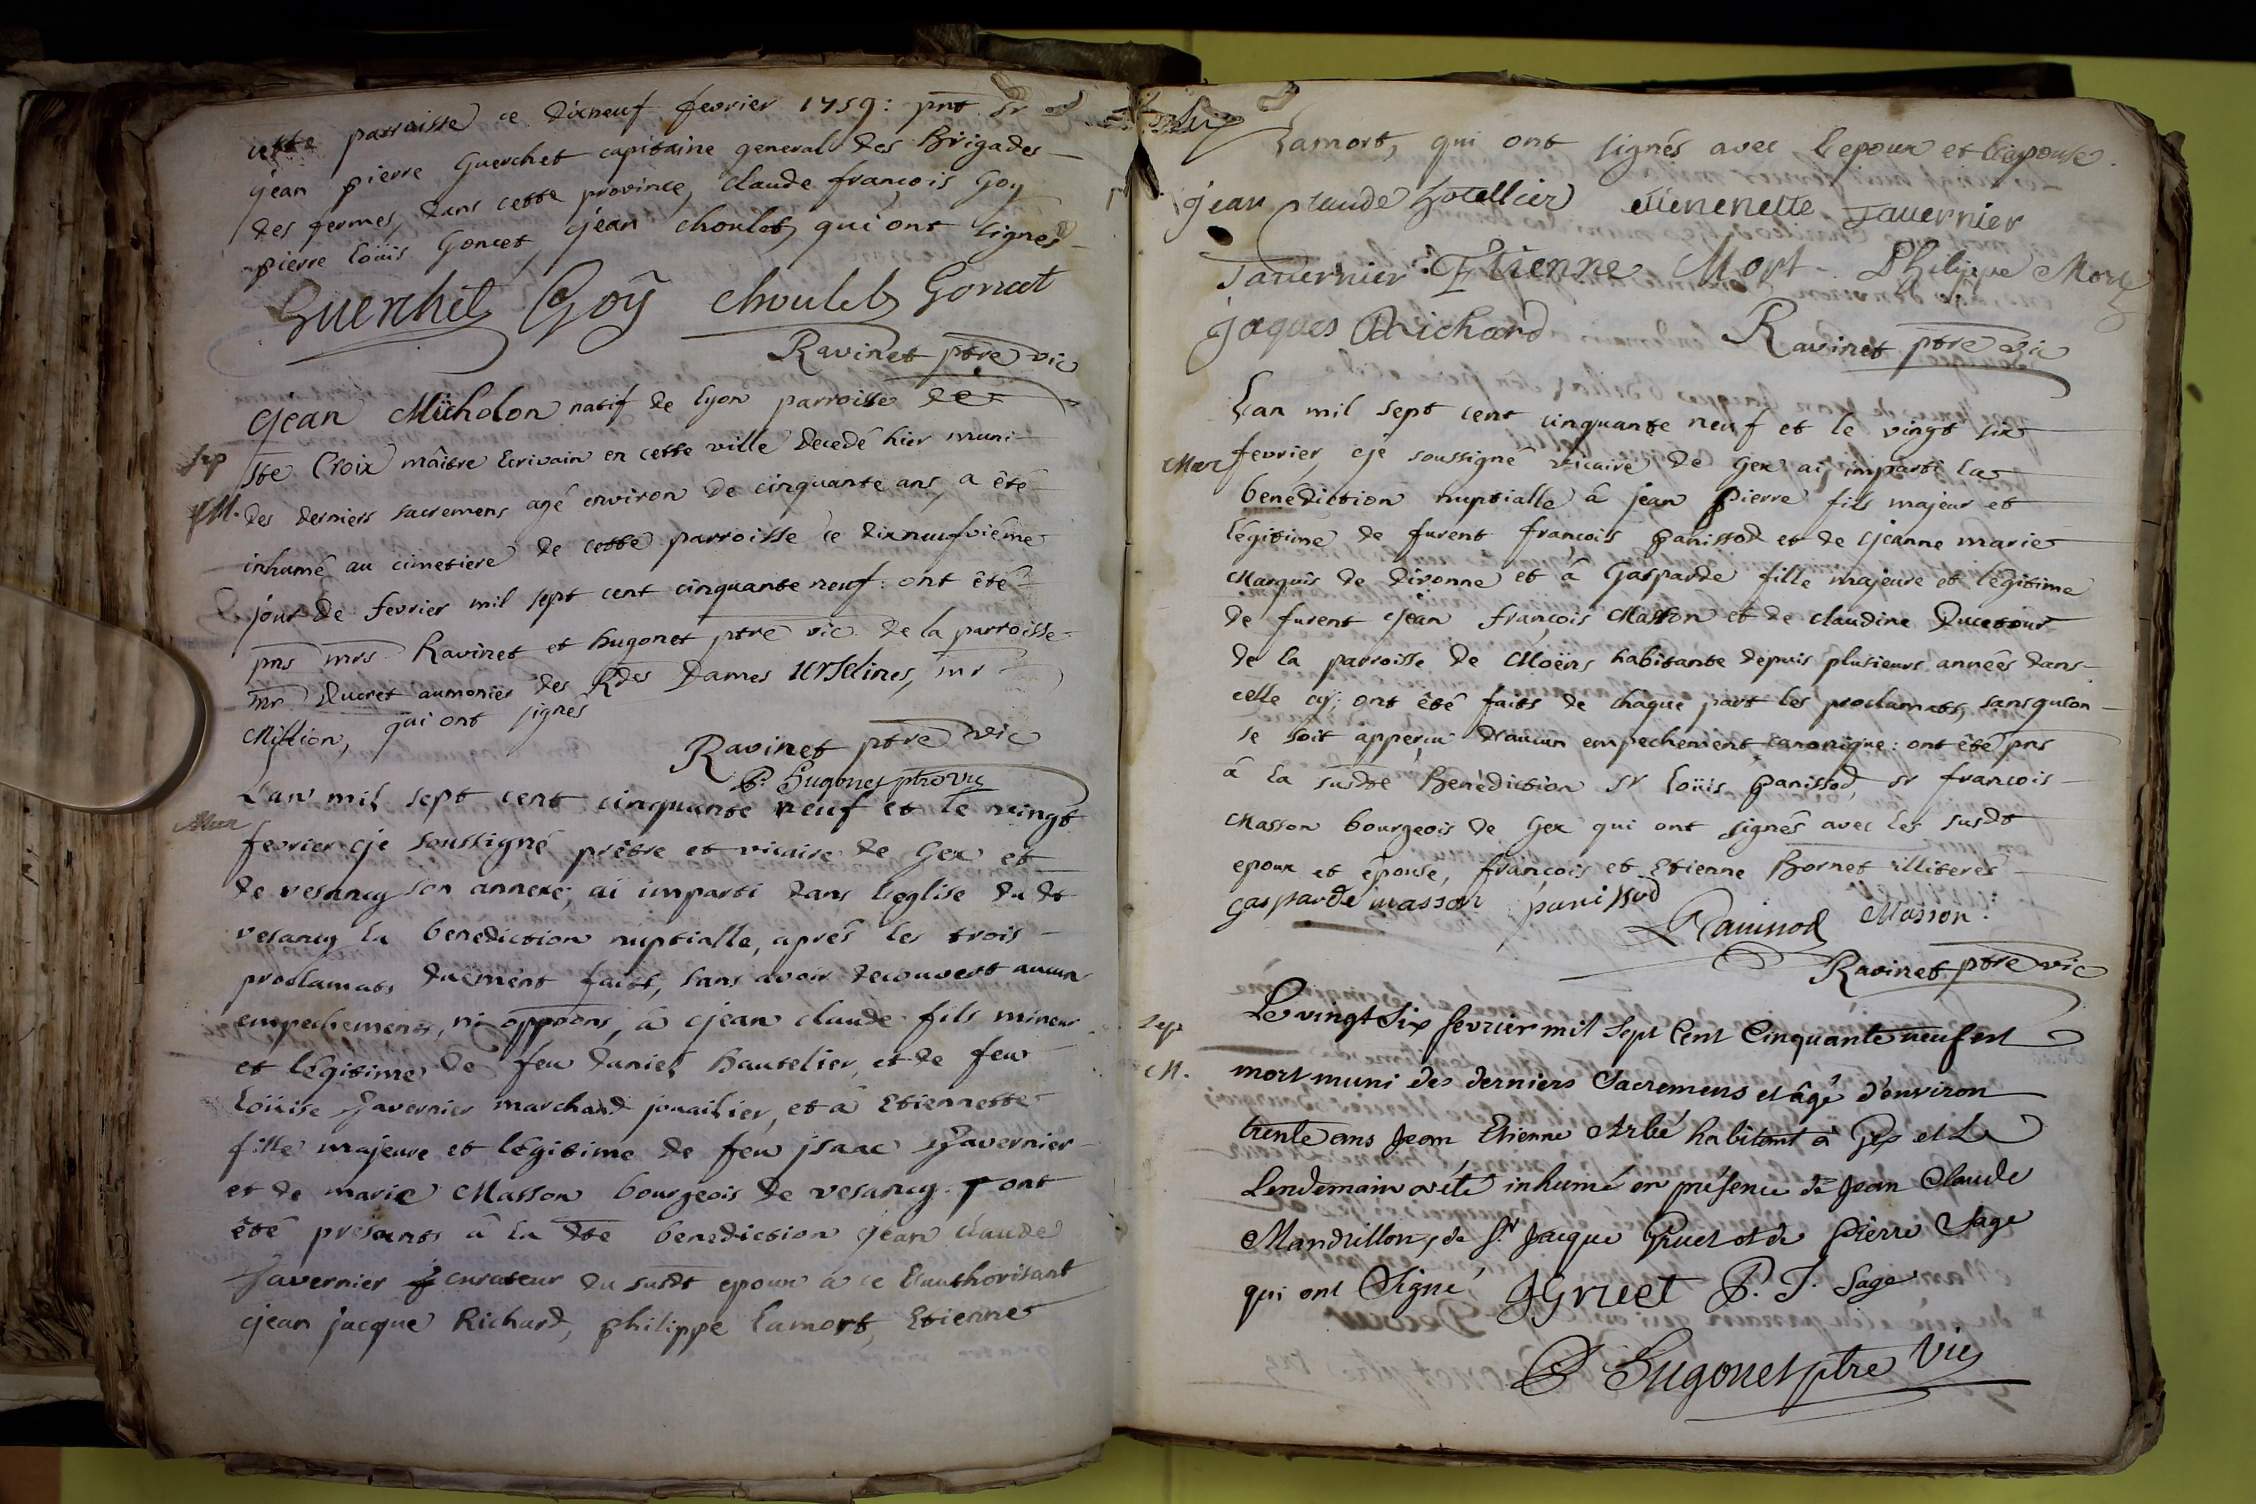 cette parroisse ce dixneuf fevrier 1759: pnt sr
jean pierre Guerchet capitaine general des Brigades
des fermes, dans cette province, claude françois Goy
pierre loüis Goncet, jean choulet, qui ont signés
Guerchet Goÿ choulet Goncet
Ravinet ptre vic
jean Micholon natif de lyon parroisse de
Sep
ste Croix maître Ecrivain en cette ville decedé hier muni
M.
des derniers sacremens agé environ de cinquante ans, a été
inhumé au cimetiere de cette parroisse ce dixneufvième
jour de fevrier mil sept cent cinquante neuf: ont été
pns mrs Ravinet et hugonet ptre vic de la parroisse
mr Ducret aumonier des Rdes Dames Urselines, mr
Million, qui ont signés
Ravinet ptre vic
P. Hugonet ptre vic
L'an mil sept cent cinquante neuf et le vingt
Mar
fevrier je soussigné prêtre et vicaire de Gex et
de vesancy son annexe; ai imparti dans l'eglise du dt
vesancy la benediction nuptialle, aprés les trois
proclamats duement faits, sans avoir decouvert aucun
empechements, ni oppoons, à jean claude fils mineur
et légitime de feu daniel hautelier, et de feu
Loüise Tavernier marchand jouailier, et à Etiennette
fille majeure et légitime de feu jsaac Tavernier
et de marie Masson bourgeois de vesancy. ont
été présents à la dte benediction jean claude
Tavernier curateur du susdt epoux à ce l'authorisant
jean jacque Richard, philippe Lamort, Etienne
Lamort, qui ont signés avec l'epoux et l'epouse.
jean claude hotellier etienenette Tauernier
Tauernier Etienne Mort Philippe Mort
jaques Richard Ravinet ptre vic
L'an mil sept cent cinquante neuf et le vingt six
Mar
fevrier, je soussigné vicaire de Gex ai, imparti la
benédiction nuptialle à jean pierre fils majeur et
légitime de furent françois panissod et de jeanne marie
Marquis de divonne et à Gasparde fille majeure et légitime
de furent jean françois Masson et de claudine Ducetour
de la parroisse de Moëns habitante depuis plusieurs années dans
celle cy; ont êté faits de chaque part les proclamats, sans qu'on
se soit apperçu d'aucun empechement canonique: ont été pns
à la susdte Benédiction sr loüis panissod, sr francois
Masson bourgeois de Gex qui ont signés avec les susdt
epoux et épouse, françois et Etienne Bornet illiterés
gasparde masson panissod
Masson
Ravinet ptre vic
Sep
Le vingt Six fevrier mil Sept Cent Cinquante neuf est
M.
mort muni des derniers Sacremens et âgé d'environ
trente ans Jean Etienne Arbé habitant à Gex et Le
Lendemain a été inhumé en présence de Jean Claude
Mandrillon, de Sr. Jacque Gruet et de Pierre Sage
qui ont Signé, J Gruet P. J. Sage
P Hugonet ptre Vic